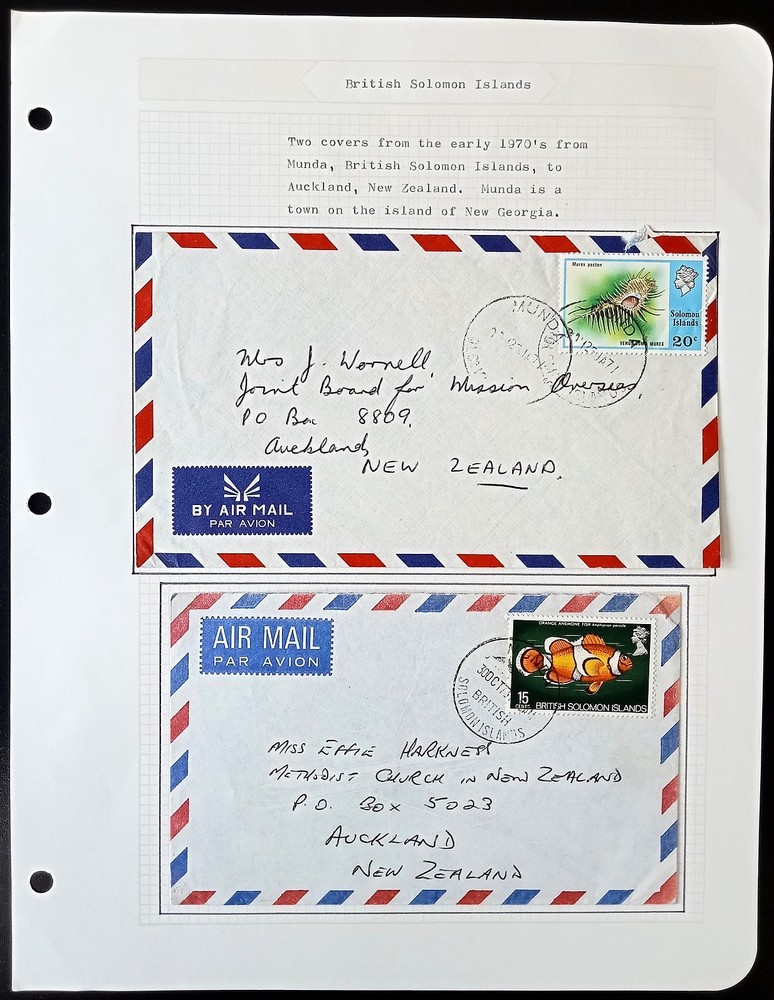 British Solomon Islands
Two covers from the early 1970's from
Munda, British Solomon Islands, to
Auckland, New Zealand. Munda is a
town on the island of New Georgia.
Murex pecten
Solomon
Islands
20c
VENUS COMB MUREX
MUNDA
Mrs J. Wornell
Joint Board for Mission Overseas,
PO Box 8809,
Auckland
NEW ZEALAND.
BY AIR MAIL
PAR AVION
AIR MAIL
PAR AVION
ORANGE ANEMONE FISH Amphiprion percula
15
CENTS
BRITISH SOLOMON ISLANDS
30OCT
BRITISH
SOLOMON ISLANDS
MISS EFFIE HARKNESS
METHODIST CHURCH IN NEW ZEALAND
P.O. BOX 5023
AUCKLAND
NEW ZEALAND